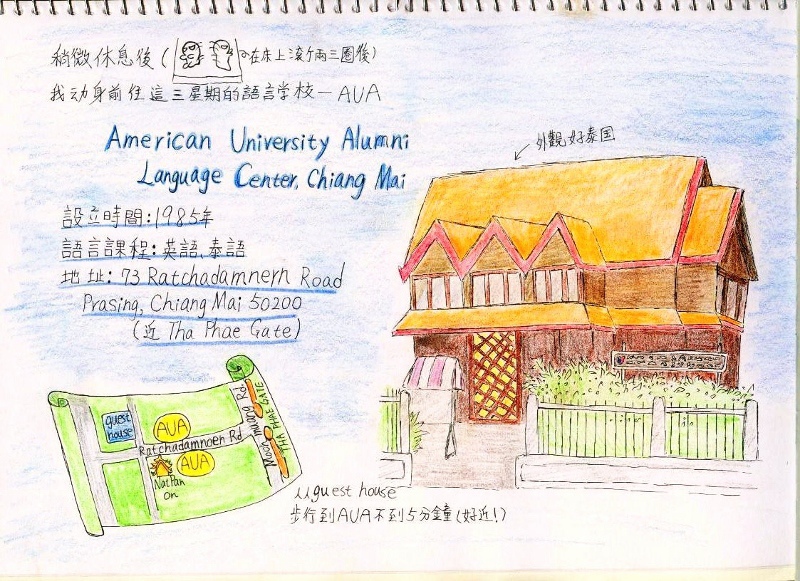 稍微休息後(在床上滾了兩三圈後)
我动身前往這三星期的語言学校—AUA
American University Alumni
Language Center, Chiang Mai
外觀好泰国
設立時間:1985年
語言課程:英語、泰語
地址:73 Ratchadamnern Road
Prasing, Chiang Mai 50200
(近 Tha Phae Gate)
guest
house
AUA
Ratchadamnoen Rd
AUA
Moon muang Rd
THA PHAE GATE
On
从guest house
步行到AUA不到5分鐘(好近!)